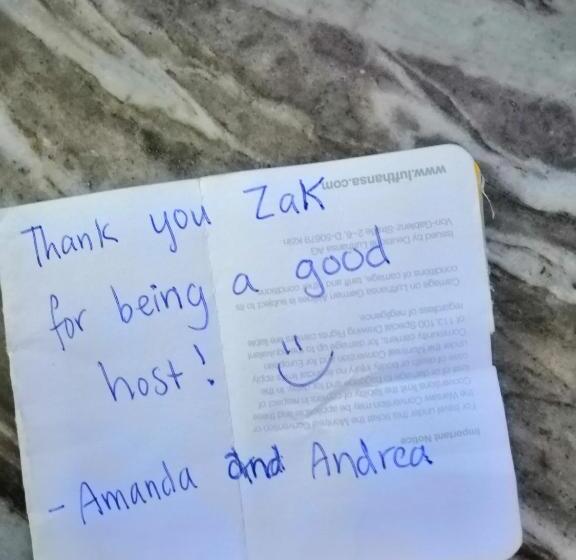 Thank you Zak
for being a good
host!
- Amanda and Andrea
www.lufthansa.com
Issued by Deutsche Lufthansa AG
Von-Gablenz-Straße 2-6, D-50679 Köln
Carriage on Lufthansa German Airlines is subject to
conditions of carriage, tariff and conditions
regardless of negligence.
of 113.100 Special Drawing Rights
Community carriers, for damages up to the equivalent
under the Montreal Convention and for European
case of death or bodily injury no financial limits apply
Convention limit the liability of carriers in respect of
the Warsaw Convention may be applicable and these
For travel under this ticket the Montreal Convention or
Important Notice